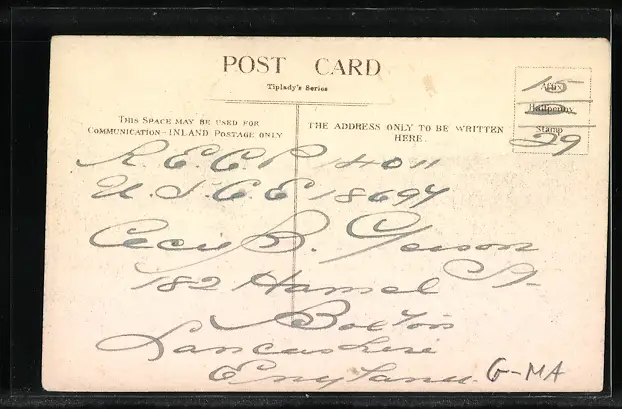 POST CARD
Tiplady's Series
THIS SPACE MAY BE USED FOR
COMMUNICATION-INLAND POSTAGE ONLY
THE ADDRESS ONLY TO BE WRITTEN
HERE.
Affix
Halfpenny
Stamp
15
29
R.E.C.P 14011
18694
Cecil B.
182 Hamel St
Bolton
Lancashire
England
G-MA